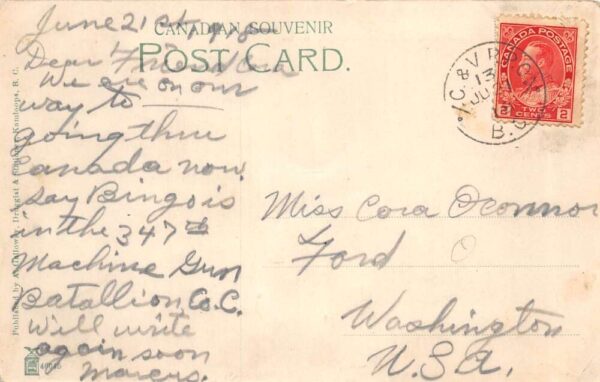 CANADIAN SOUVENIR
POST CARD.
June 21st,
Dear Friend
We are on our
way to
going thru
Canada now.
Say Bingo is
in the 347th
Machine Gun
Batallion, Co. C.
Will write
again soon
Miss Cora Oconnor
Ford
Washington
U.S.A.
CANADA POSTAGE
2 TWO CENTS 2
C. & V. R.P.O.
13
JU
B.C.
Published by A. Druggist & Kamloops, B. C.